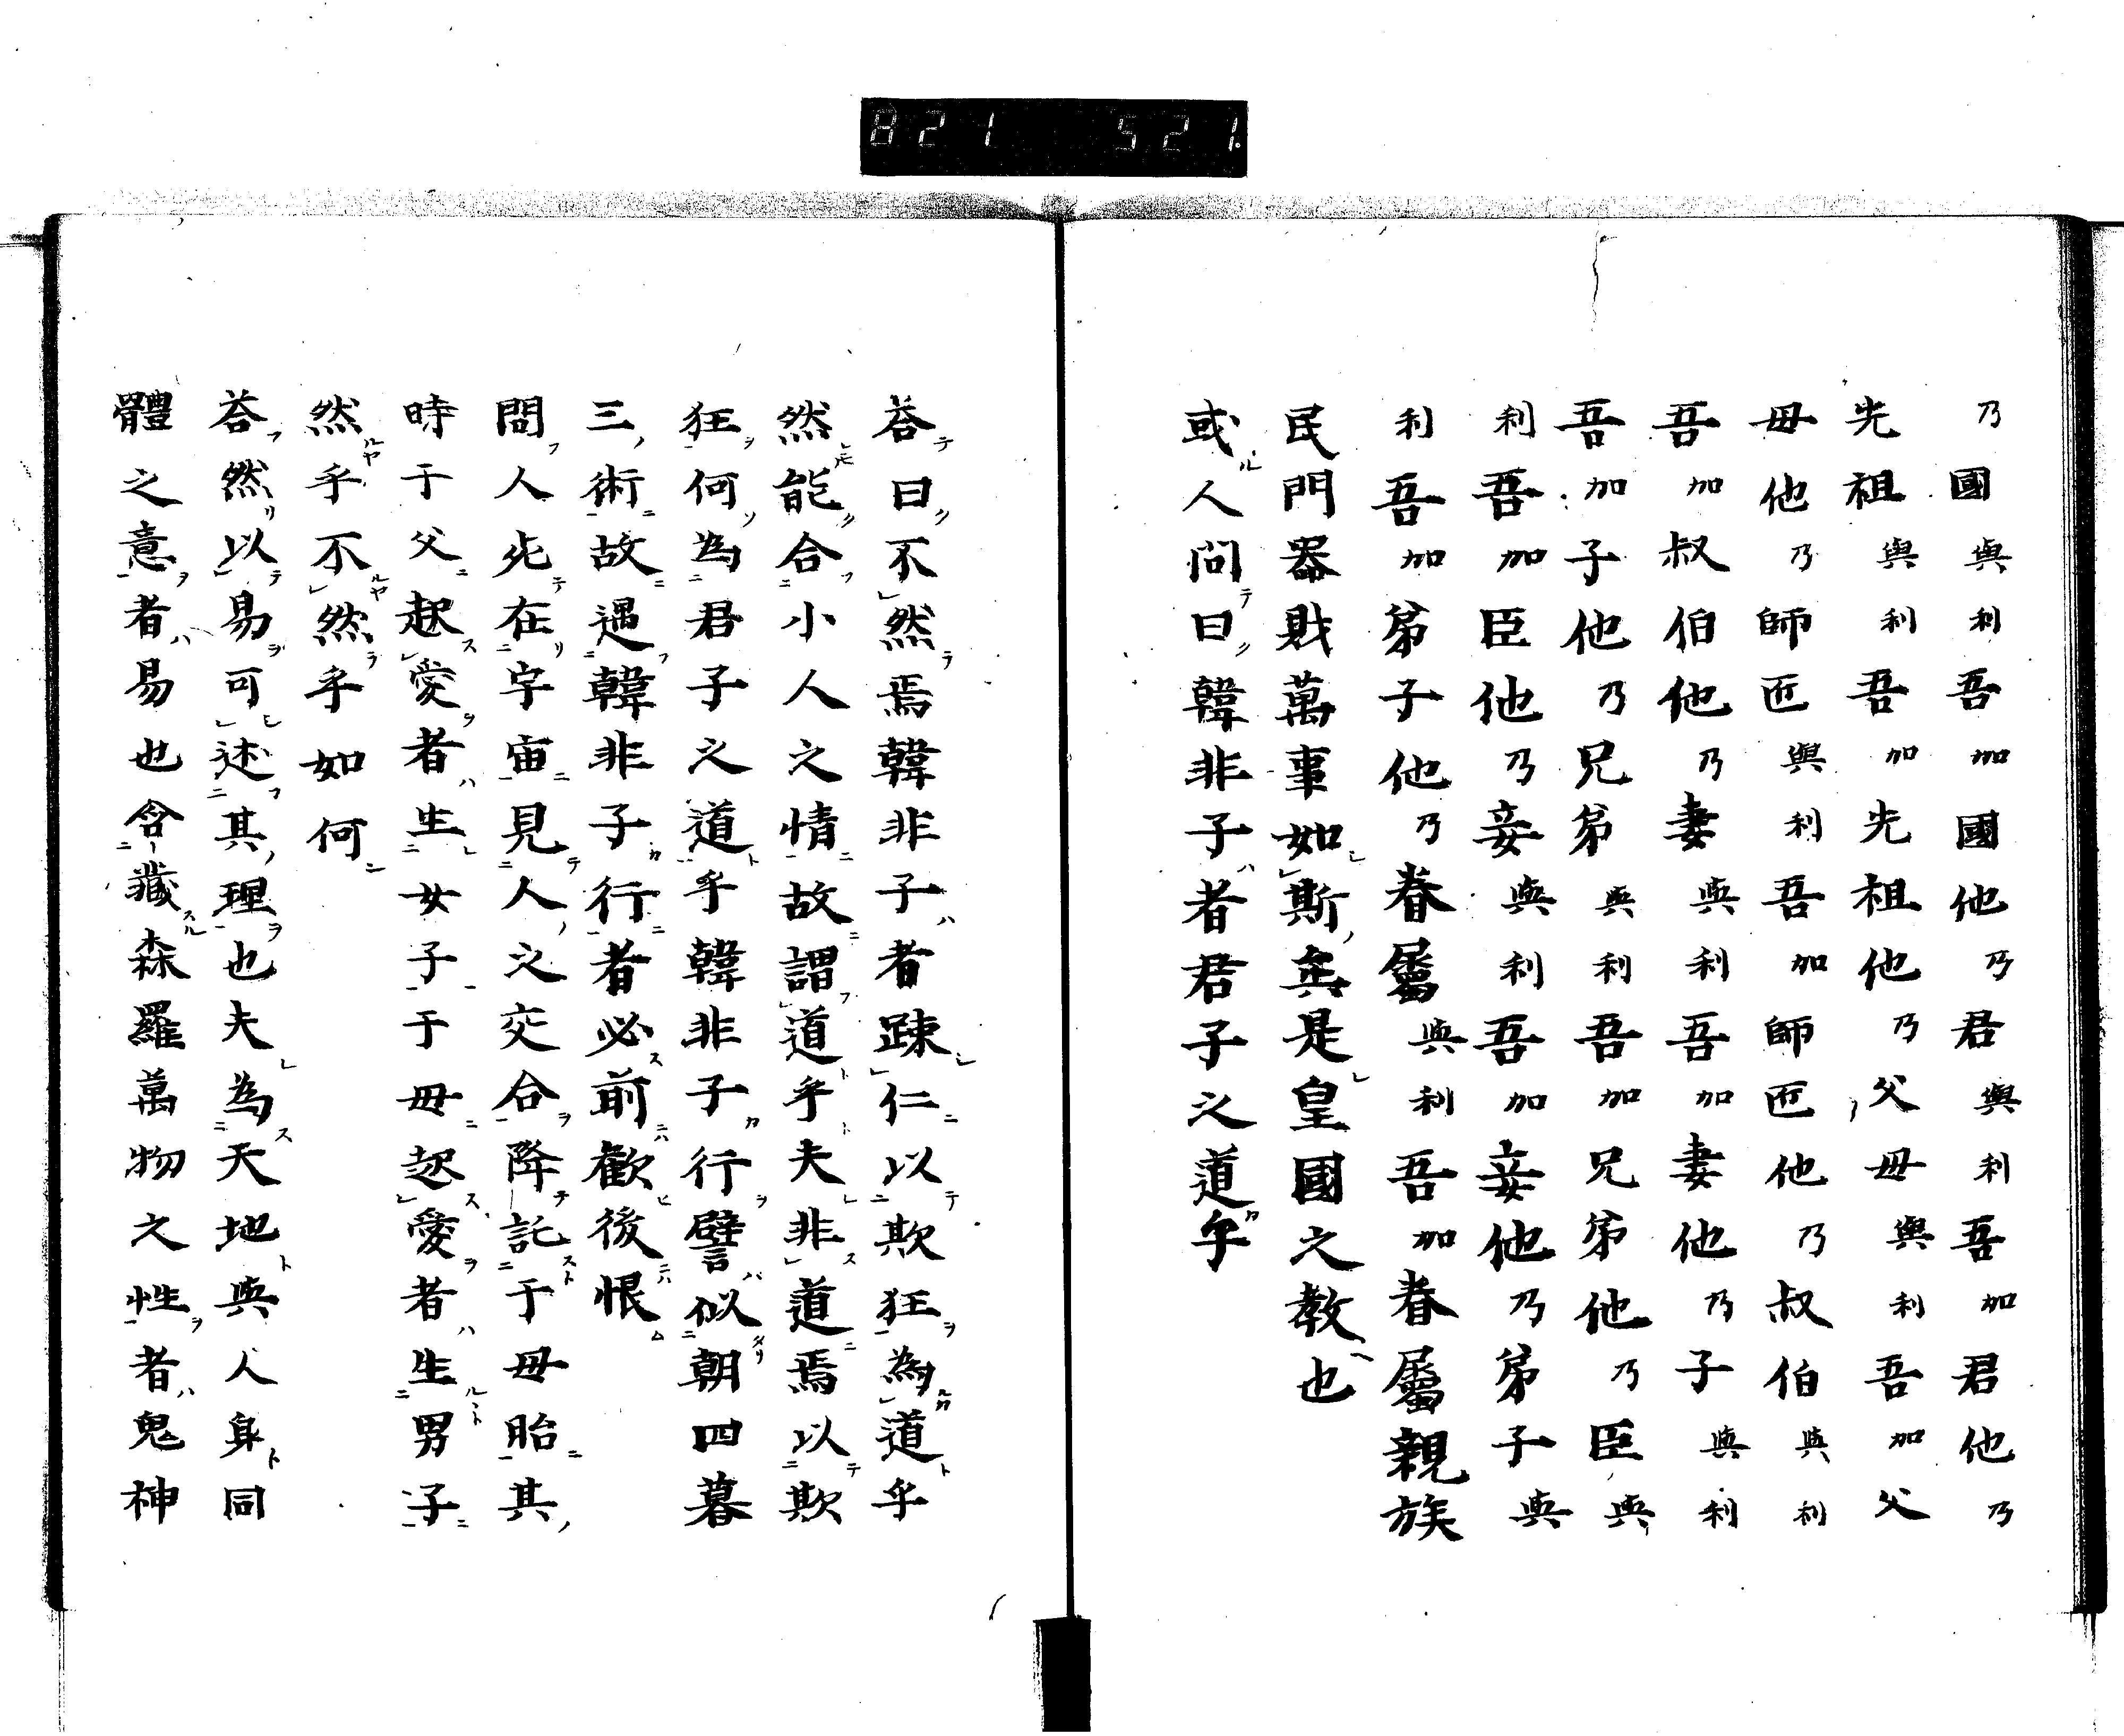 821 521.
乃國與利吾加國他乃君與利吾加君他乃
先祖與利吾加先祖他乃父母與利吾加父
母他乃師匠與利吾加師匠他乃叔伯與利
吾加叔伯他乃妻與利吾加妻他乃子與利
吾加子他乃兄弟與利吾加兄弟他乃臣與
利吾加臣他乃妾與利吾加妾他乃弟子與
利吾加弟子他乃眷屬與利吾加眷屬親族
民門器財萬事如斯矣是皇國之教也
或人問曰韓非子者君子之道乎
荅曰不然焉韓非子者踈仁以欺狂為道乎
然能合小人之情故謂道乎夫非道焉以欺
狂何為君子之道乎韓非子行譬似朝四暮
三術故遇韓非子行者必前歡後恨
問人死在宇宙見人之交合降託于母胎其
時于父起愛者生女子于母起愛者生男子
然乎不然乎如何
荅然以易可述其理也夫為天地與人身同
體之意者易也含藏森羅萬物之性者鬼神